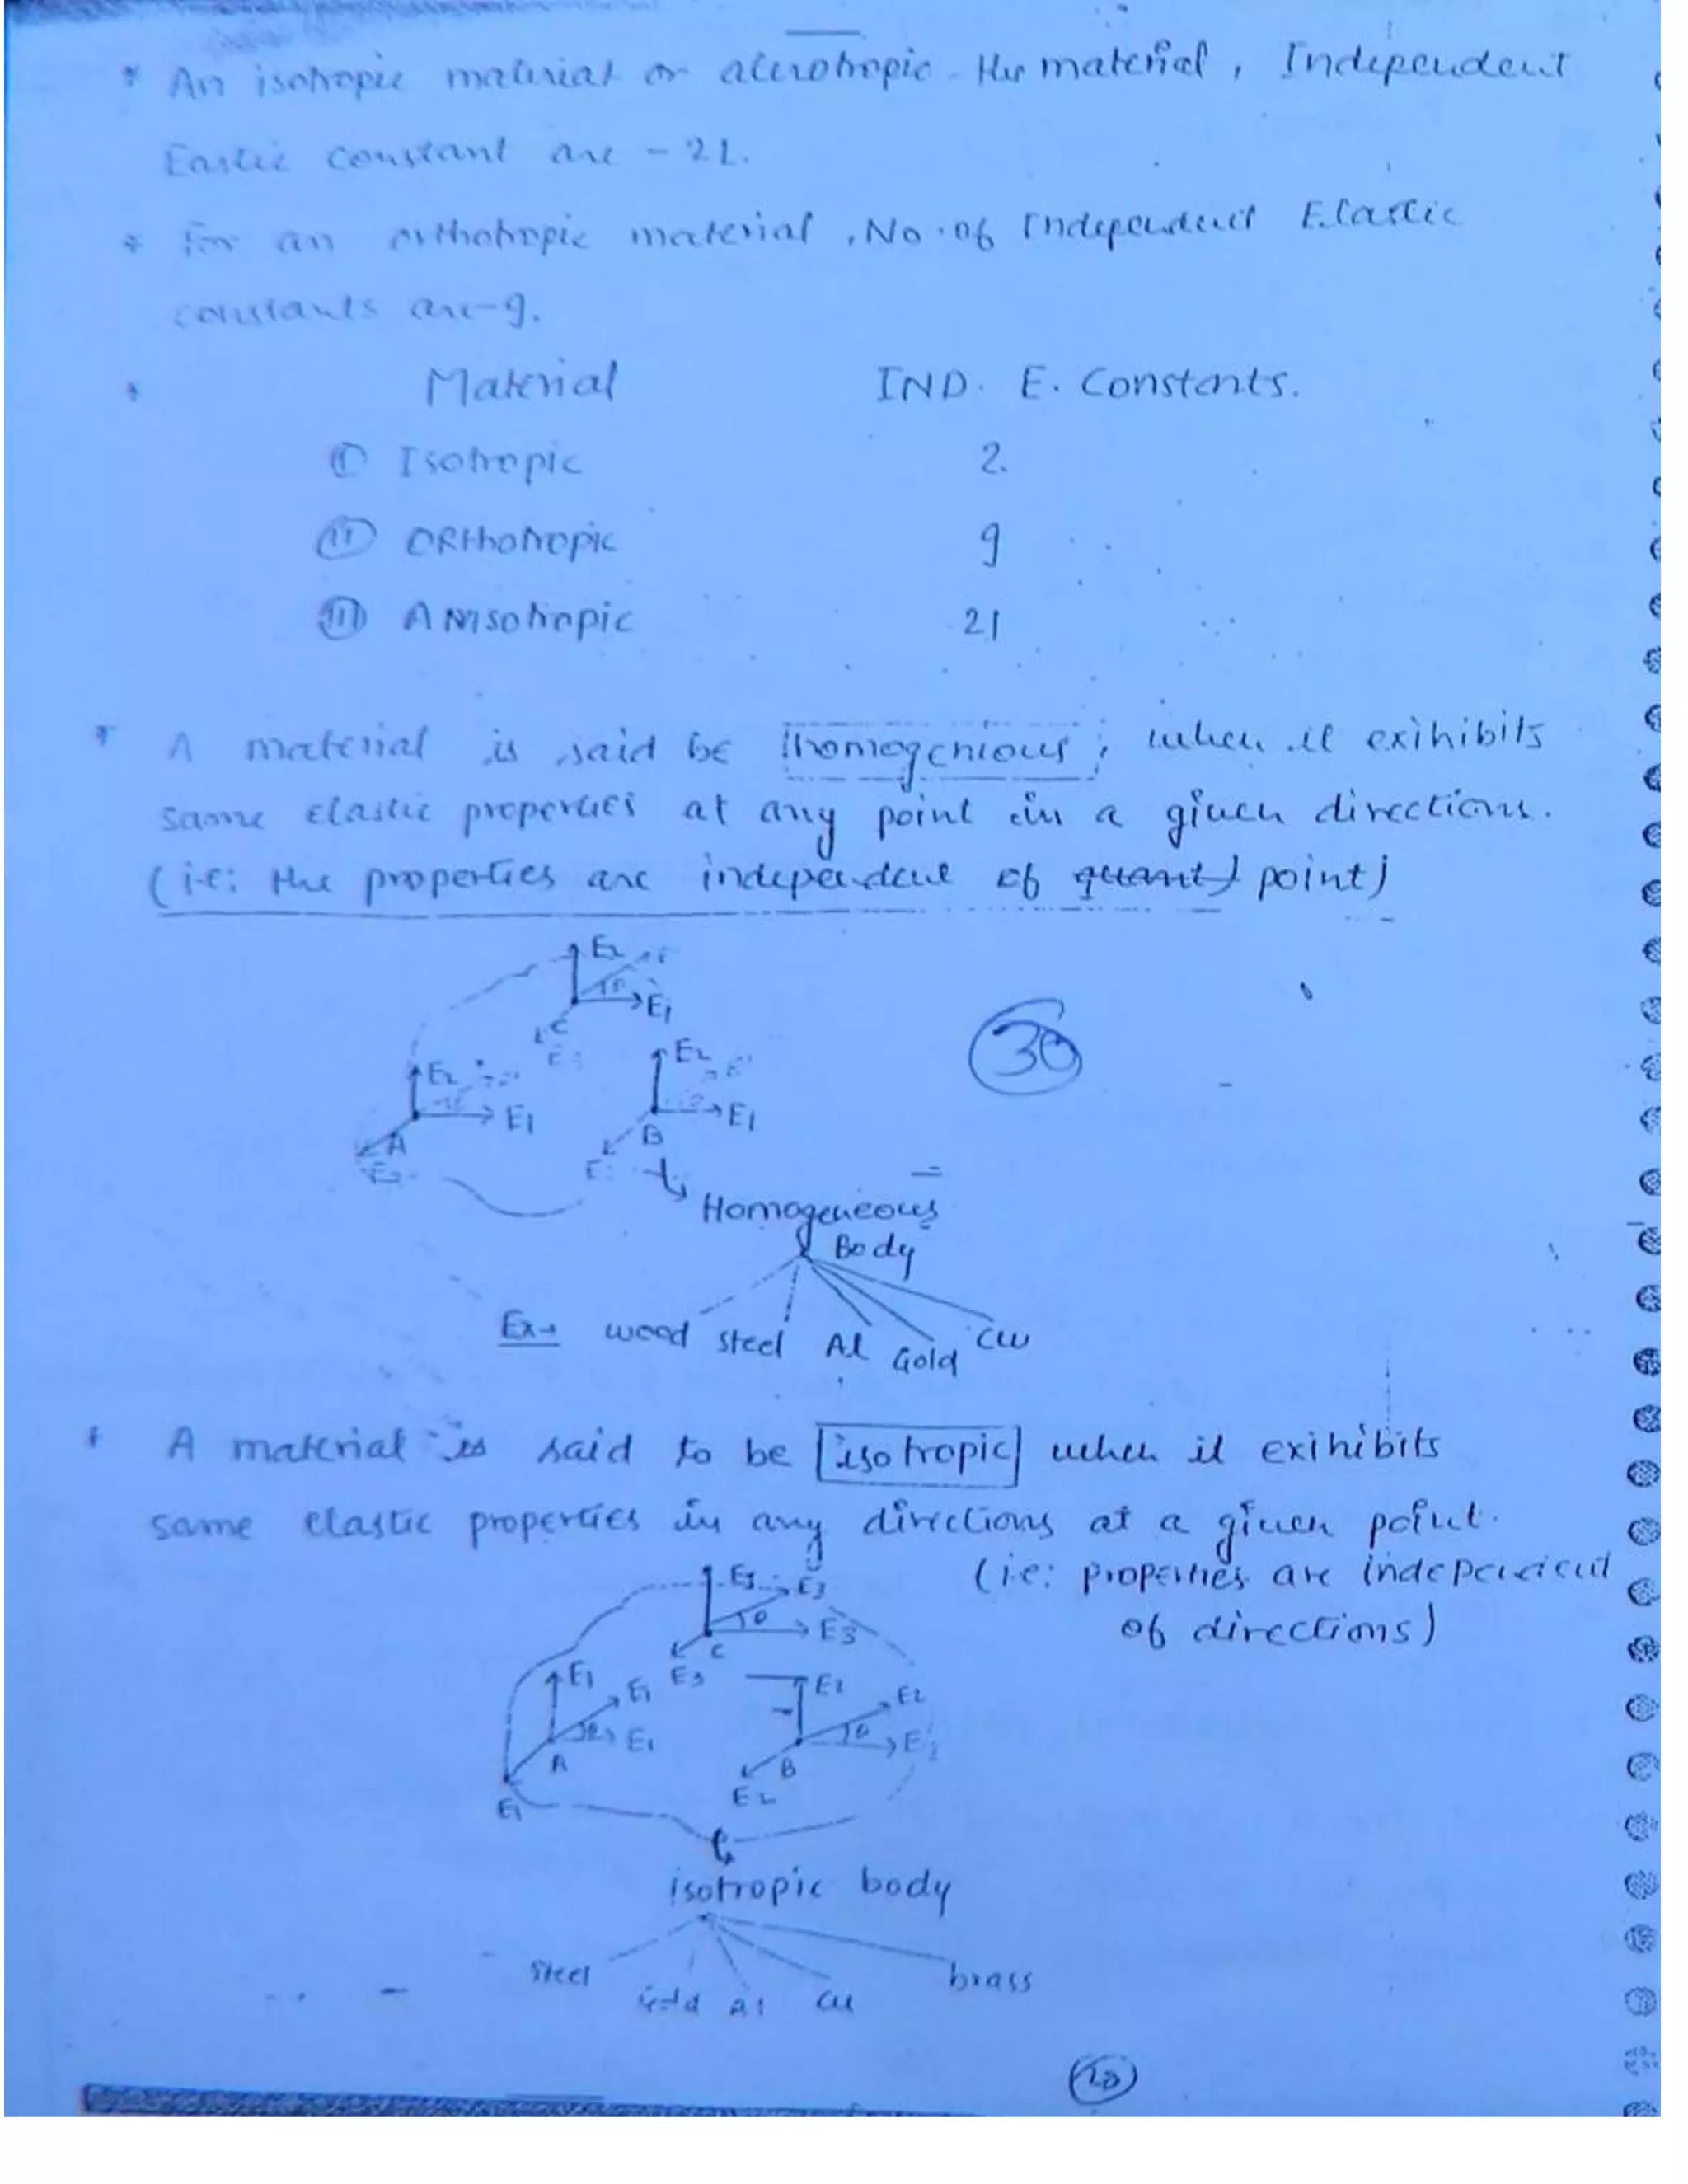 * An isotropic material or aleotropic the material, Independent
Eastic constant are - 21.
* For an orthotropic material, No. of Independent Elastic
constants are-9.
* Material IND. E. Constants.
(i) Isotropic 2.
(ii) ORthotropic 9
(iii) Anisotropic 21
* A material is said be homogenious; when it exihibits
same elastic properties at any point in a given directions.
(i.e: the properties are independent of point)
E2
E1
C
E2 E2
E1 E1
A B
Homogeneous
Body
Ex→ wood steel Al Gold CU
* A material is said to be isotropic when it exihibits
same elastic properties in any directions at a given point.
(i.e: properties are independent
of directions)
E3 E3
θ E3
C
E3
E1 E1 E2 E2
θ E1 θ E2
A B
E1 E2
isotropic body
steel Gold Al Cu brass
30